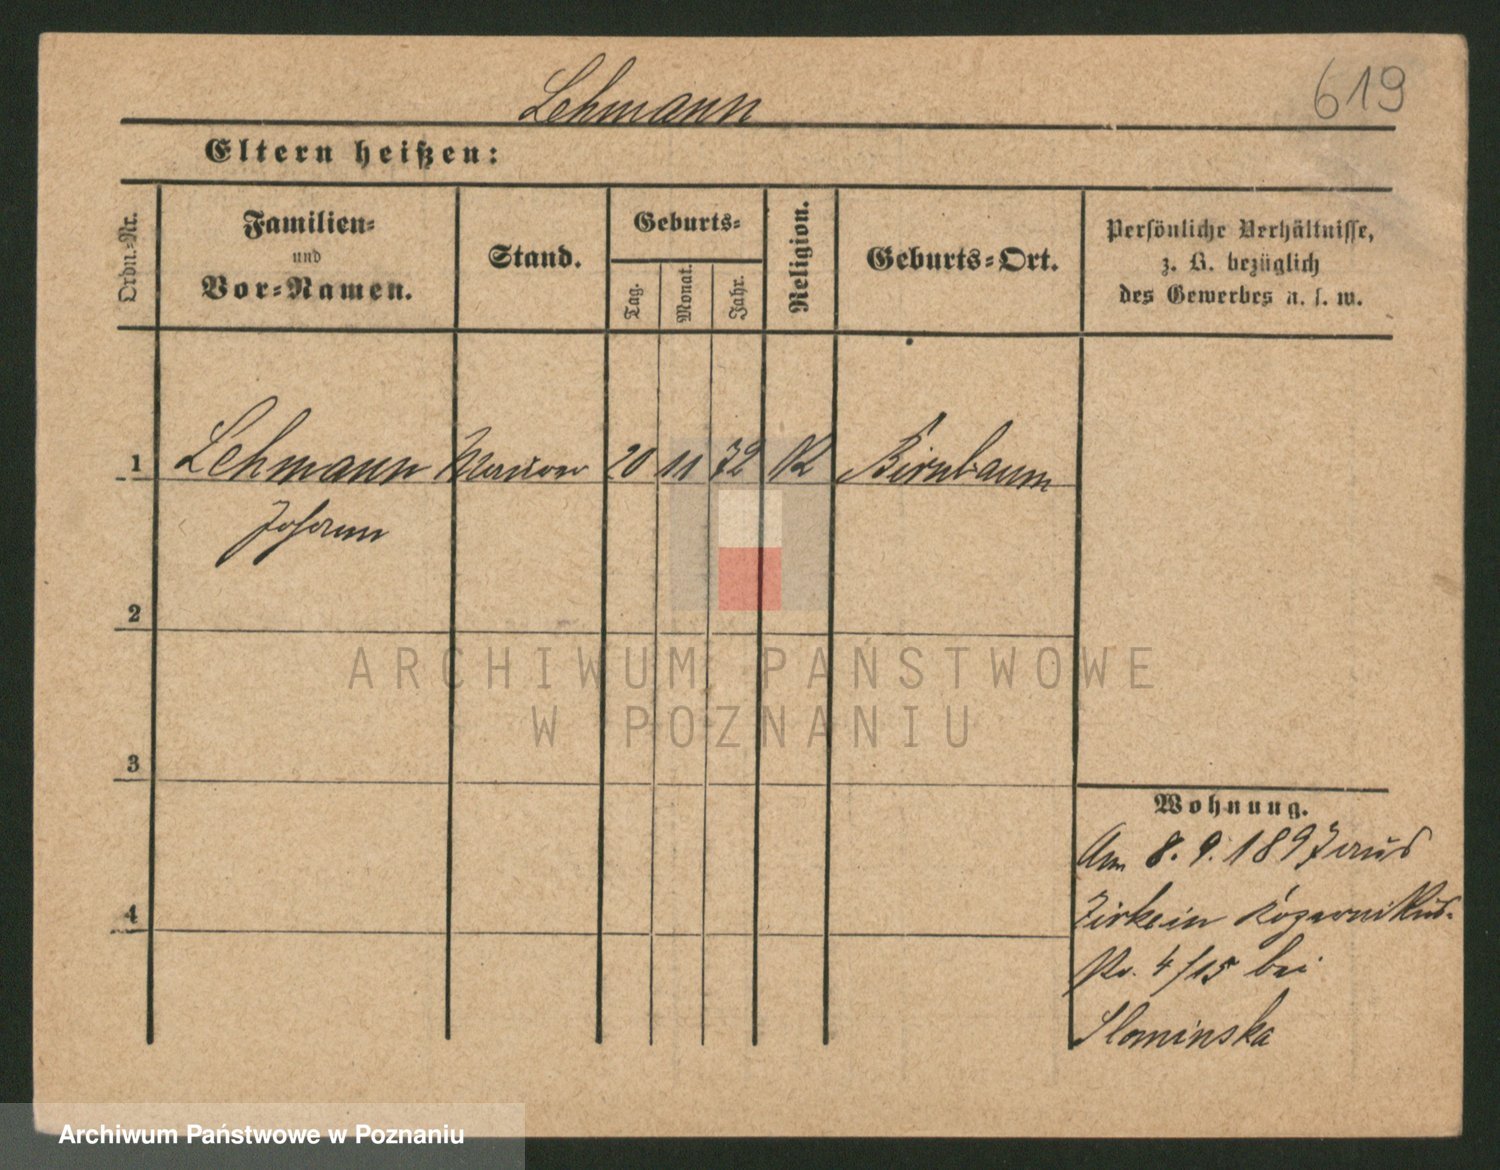 Lehmann
619
Eltern heißen:
Ordn.-Nr.
Familien-
und
Vor-Namen.
Stand.
Geburts-
Tag.
Monat.
Jahr.
Religion.
Geburts-Ort.
Persönliche Verhältnisse,
z. B. bezüglich
des Gewerbes u. s. w.
1 Lehmann Maurer 20 11 72 K Birnbaum
Johann
2
ARCHIWUM PAŃSTWOWE
W POZNANIU
3
Wohnung.
Am 8. 9. 1897 aus
4
Nr. 4/15 bei
Slominska
Archiwum Państwowe w Poznaniu